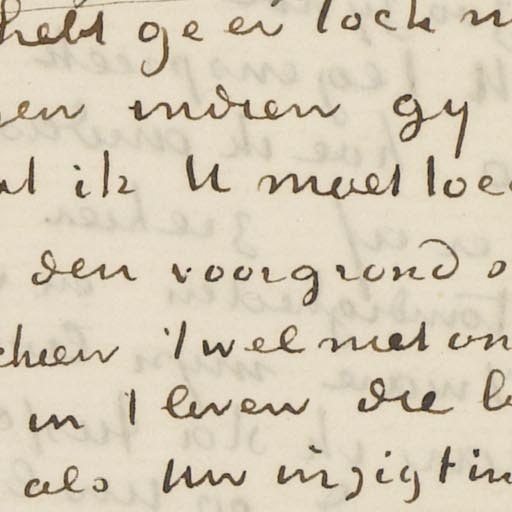 hebt ge er toch
en indien gy
ik U moet toe
den voorgrond
't wel met on
in 't leven die
als Uw inzigt in